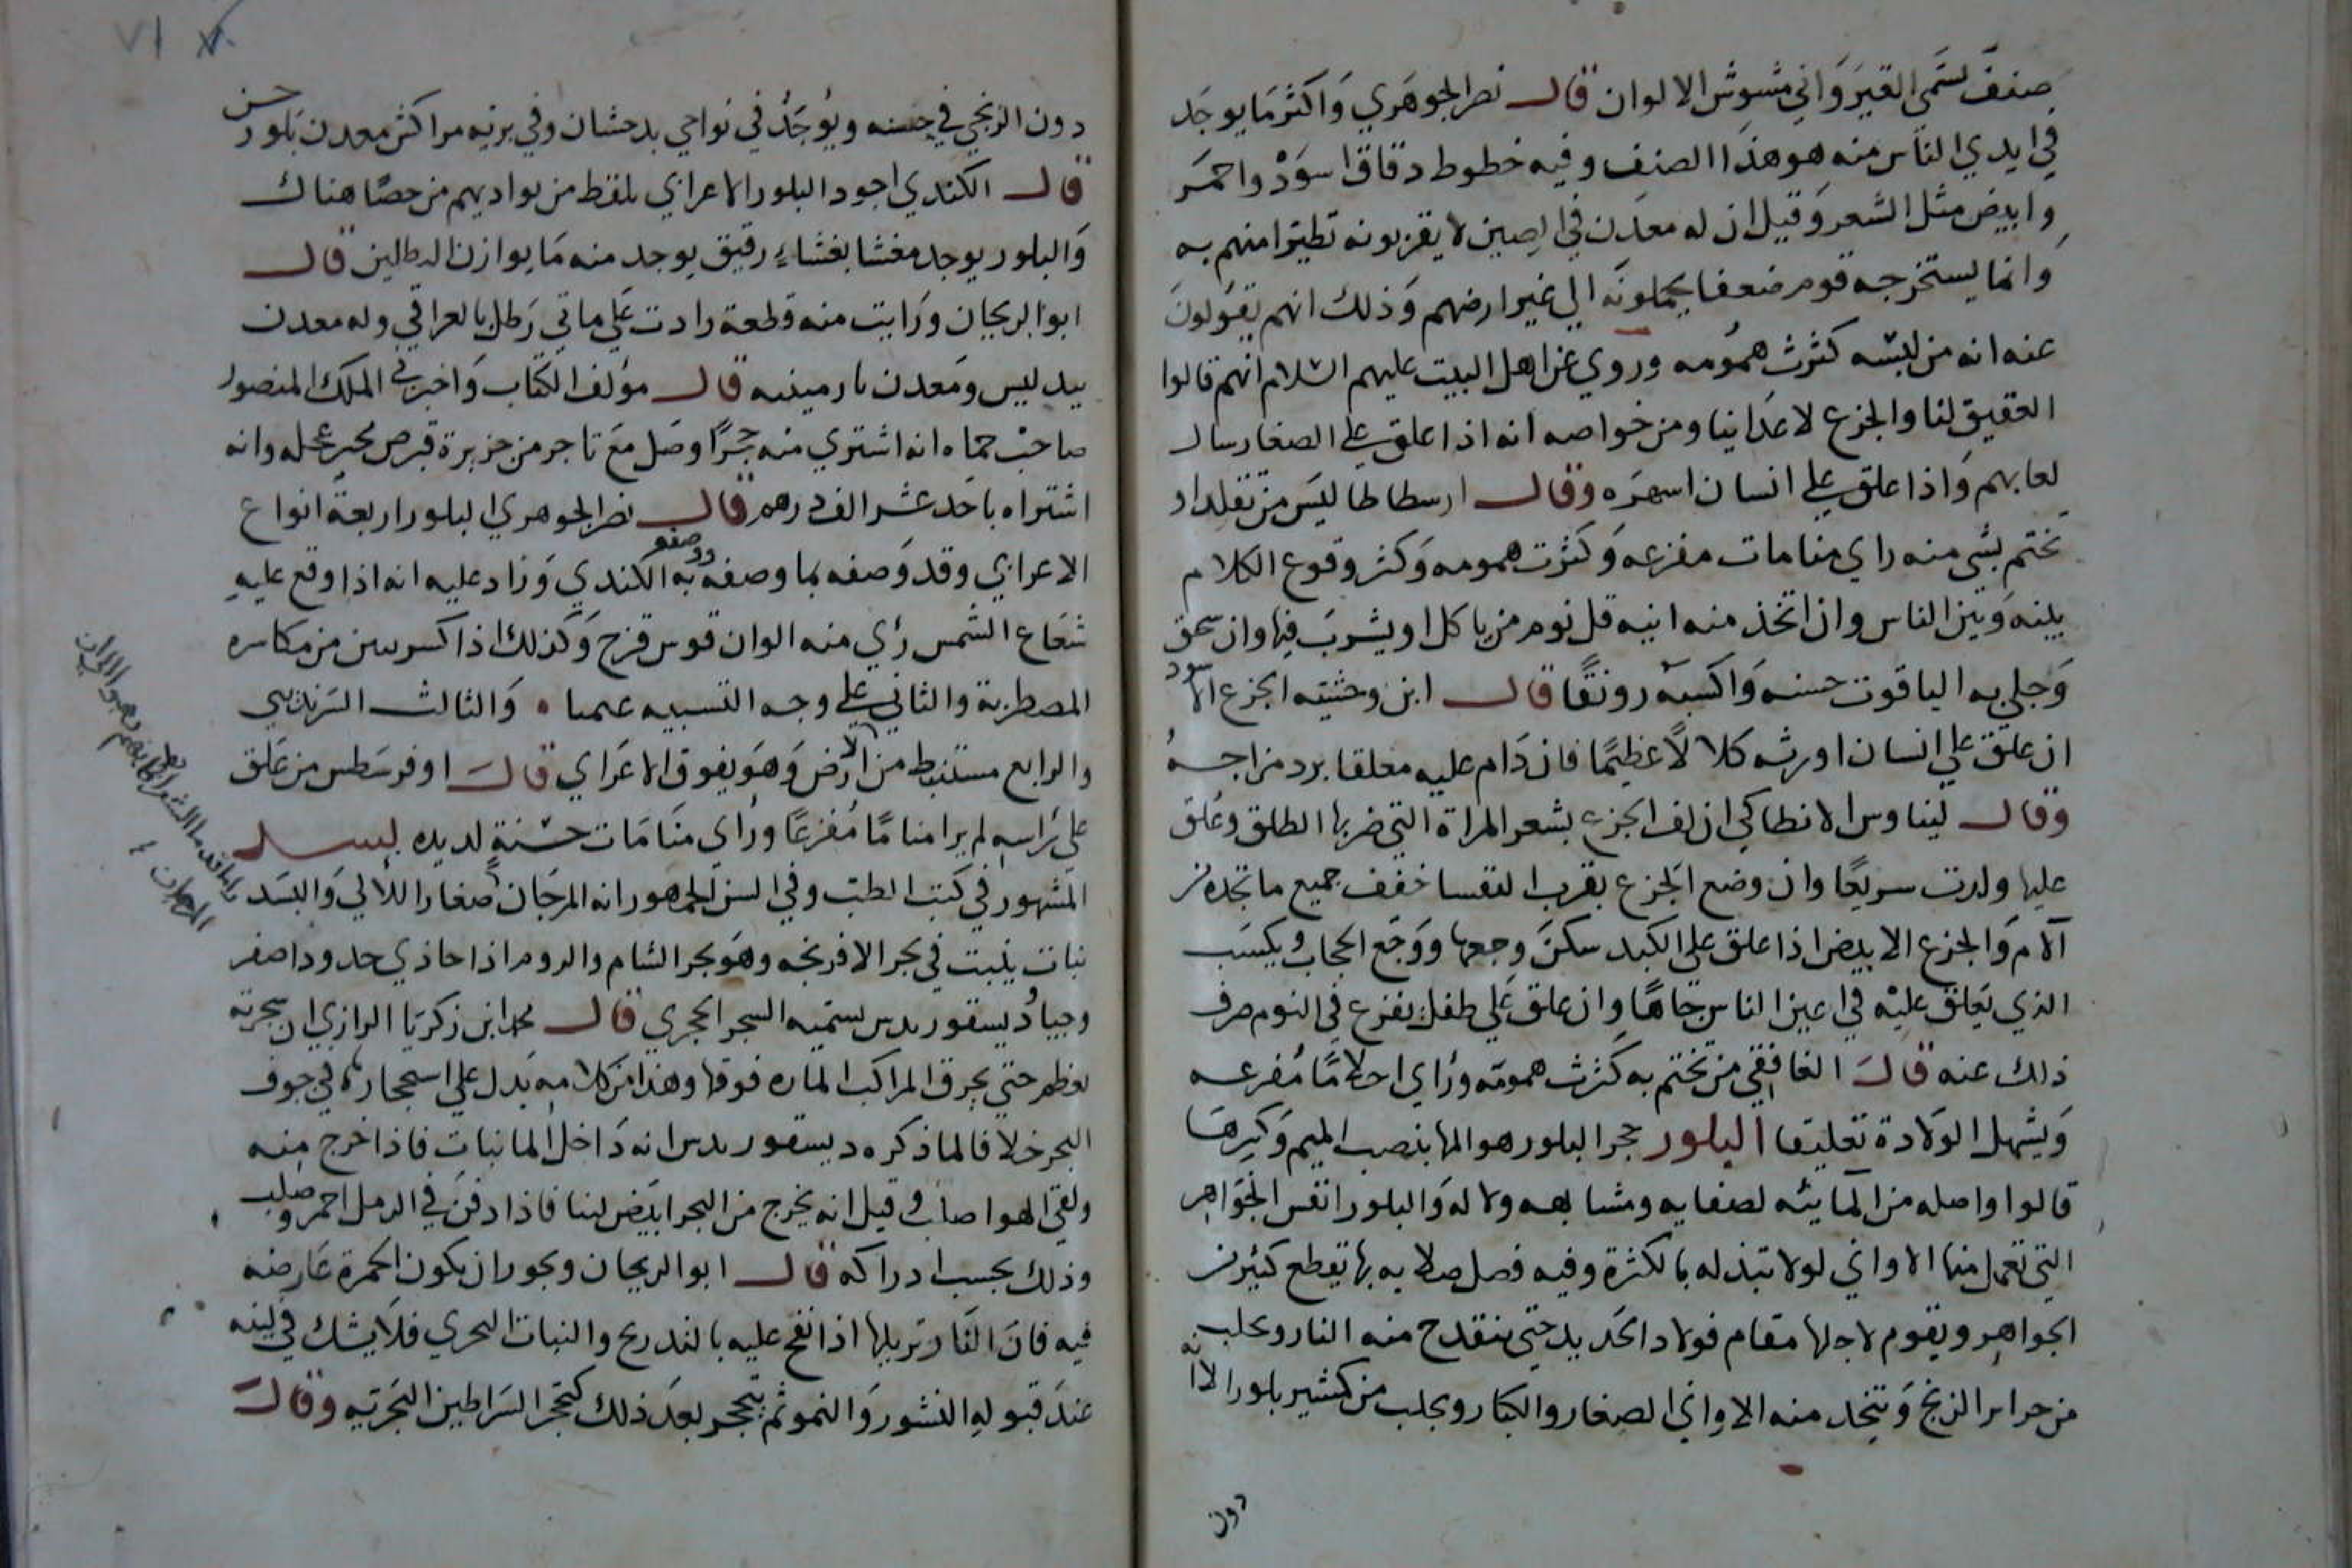 صنف يسمى القيرواني مشوش الالوان قال نصر الجوهري واكثر ما يوجد
في ايدي الناس منه هو هذا الصنف وفيه خطوط دقاق اسود واحمر
وابيض مثل الشعر وقيل ان له معدن في الصين لا يقربونه تطيرا منهم به
وانما يستخرجه قوم ضعفا يحملونه الي غير ارضهم وذلك انهم يقولون
عنه انه من لبسه كثرت همومه وروي عن اهل البيت عليهم السلام انهم قالوا
العقيق لنا والجزع لاعداينا ومن خواصه انه اذا علق علي الصغار سال
لعابهم واذا علق علي انسان اسهره وقال ارسطاطاليس من تقلد او
تختم بشي منه راي منامات مفزعه وكثرت همومه وكثر وقوع الكلام
بينه وبين الناس وان اتخذ منه انيه قل نوم من ياكل او يشرب فيها وان سحق
وجلي به الياقوت حسنه واكسبه رونقا قال ابن وحشيه الجزع الاسود
ان علق علي انسان اورثه كلالا عظيما فان دام عليه معلقا برد مزاجه
وقال ليناوس الانطاكي ان لف الجزع بشعر المراة التي ضربها الطلق وعلق
عليها ولدت سريعا وان وضع الجزع بقرب النفسا خفف جميع ما تجده من
آلام والجزع الابيض اذا علق علي الكبد سكن وجعها ووجع الحجاب ويكسب
الذي يعلق عليه في اعين الناس جاها وان علق علي طفل يفزع في النوم صرف
ذلك عنه قال الغافقي من تختم به كثرت همومه وراي احلاما مفزعه
ويسهل الولادة تعليقا البلور حجر البلور هو المها بنصب الميم وكسرها
قالوا واصله من المايئه لصفايه ومشابهه ولاله والبلور انفس الجواهر
التي تعمل منها الاواني لولا تبذله بالكثرة وفيه فصل صلابه بها يقطع كثير من
الجواهر ويقوم لاجلها مقام فولاد الحديد حتي ينقدح منه النار ويجلب
من جراير الزنج ويتخد منه الاواني الصغار والكبار ويجلب من كشمير بلور الا انه
دون
دون الزنجي في حسنه ويوجد في نواحي بدخشان وفي بريه مراكش معدن بلور حسن
قال الكندي اجود البلور الاعرابي يلقط من بواديهم من حصا هناك
والبلور يوجد مغشا بغشاء رقيق يوجد منه ما يوازن الرطلين قال
ابو الريحان ورايت منه قطعة زادت علي ماتي رطل بالعراقي وله معدن
ببدليس ومعدن بارمينيه قال مؤلف الكتاب واخبرني الملك المنصور
صاحب حماه انه اشتري منه حجرا وصل مع تاجر من جزيرة قبرص وانه
اشتراه باحد عشر الف درهم قال نصر الجوهري البلور اربعة انواع
الاعرابي وقد وصفه بما وصفه به الكندي وزاد عليه انه اذا وقع عليه
شعاع الشمس رأي منه الوان قوس قزح وكذلك اذا كسر من مكاسره
المصطربة والثاني علي وجه التسبيه والثالث السرنديبي
والرابع مستنبط من الارض وهو يفوق الاعرابي قال اوفرسطس من علق
علي راسه لم يرا مناما مفزعا وراي منامات حسنة لديده بسد
المشهور في كتب الطب وفي السن الجمهور انه المرجان صغار اللالي والبسد
نبات ينبت في بحر الافرنجه وهو بحر الشام والروم اذا حاذي حدودا صفر
وجيا وديسقوريدس يسميه الشجر الحجري قال محمد ابن زكريا الرازي ان شجرته
تعظم حتي يخرق المراكب الماره فوقها وهذا من كلامه يدل علي استحجاره في جوف
البحر خلافا لما ذكره ديسقوريدس انه داخل الما نبات فاذا خرج منه
ولقي الهوا صلب وقيل انه يخرج من البحر ابيض لينا فاذا دفن في الرمل احمر وصلب
وذلك بحسب ادراكه قال ابو الريحان ويجوز ان يكون الحمرة عارضه
فيه فان النار تزيلها اذا نفخ عليه بالتدريج والنبات البحري فلا يشك في لينه
عند قبوله النشور والنمو ثم يتحجر بعد ذلك كتحجر السراطين البحريه وقال